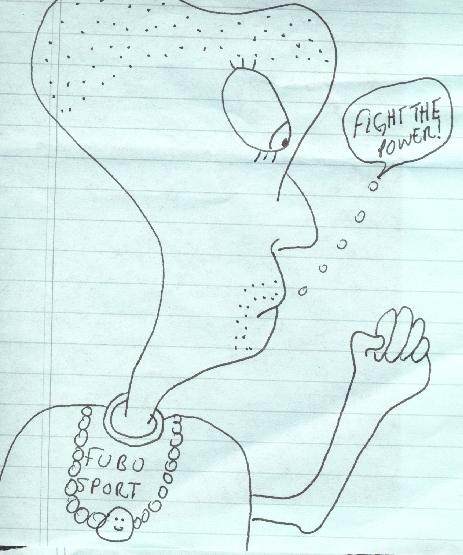 FIGHT THE
POWER!
FUBU
SPORT